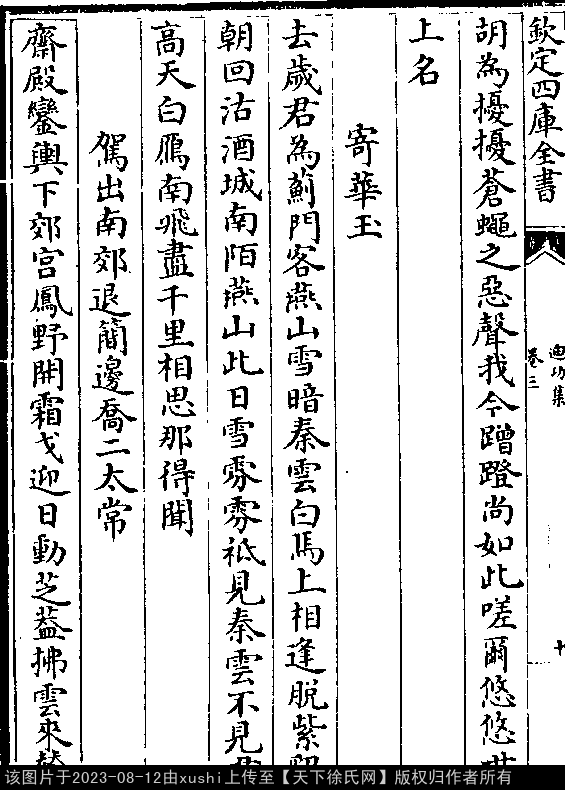 欽定四庫全書
迪功集
卷三
十
胡為擾擾蒼蠅之惡聲我今蹭蹬尚如此嗟爾悠悠世
上名
寄華玉
去歲君為薊門客燕山雪暗秦雲白馬上相逢脫紫貂
朝回沽酒城南陌燕山此日雪雰雰祗見秦雲不見君
高天白鴈南飛盡千里相思那得聞
駕出南郊退簡邊喬二太常
齋殿鑾輿下郊宮鳳野開霜戈迎日動芝葢拂雲來
该图片于2023-08-12由xushi上传至【天下徐氏网】版权归作者所有